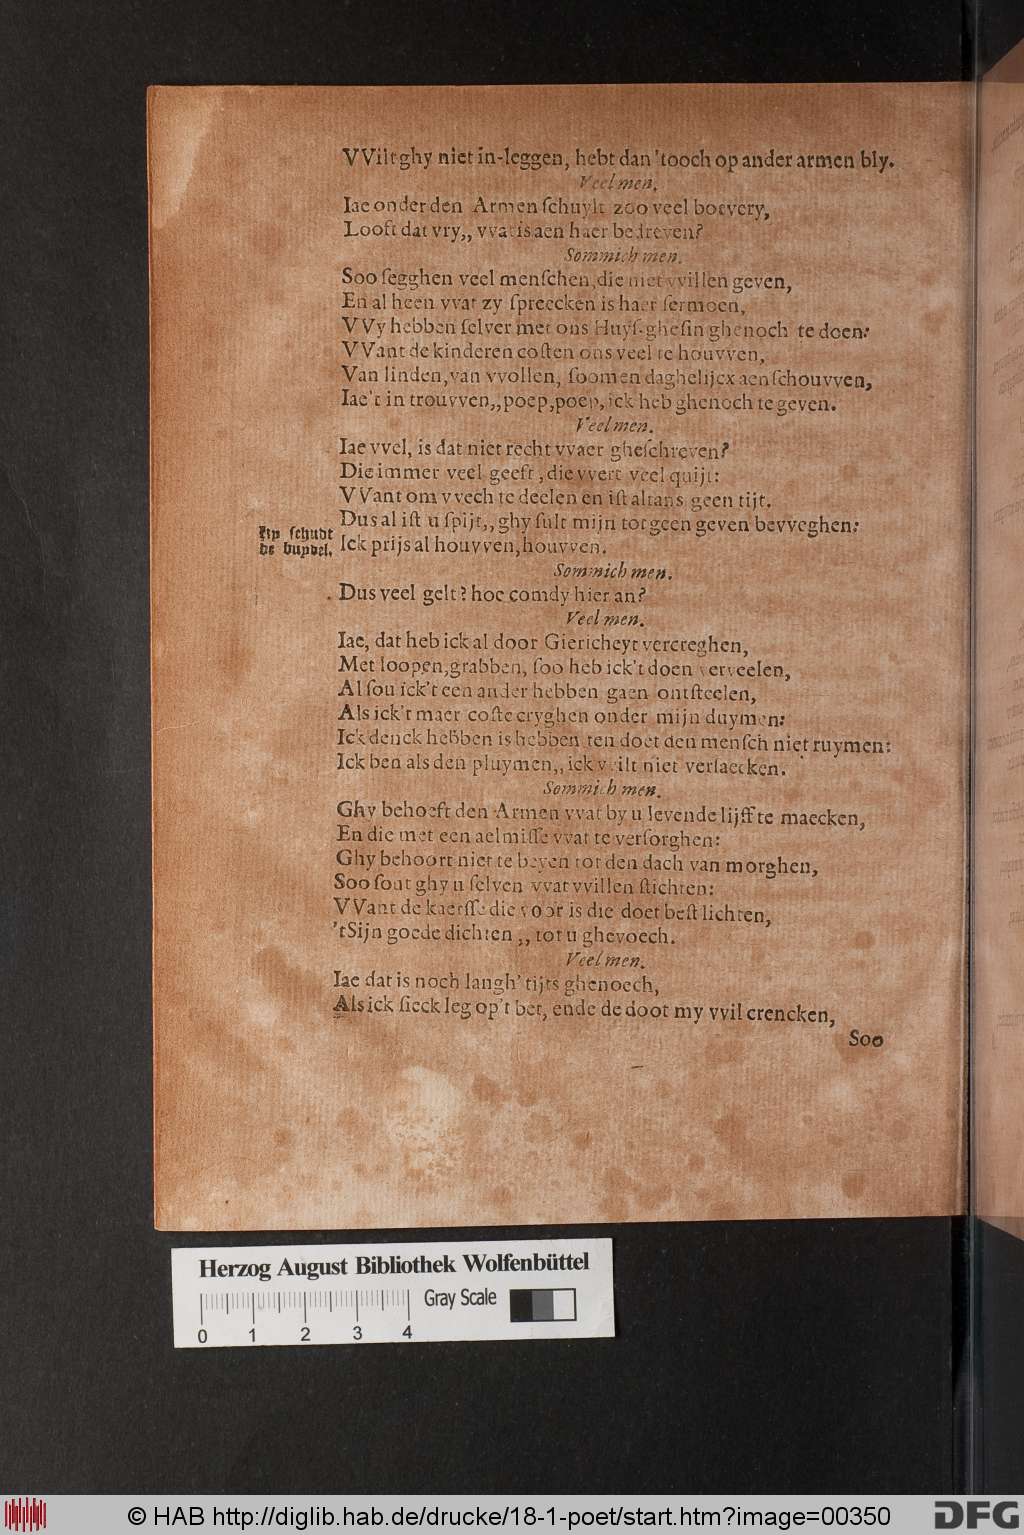 VVilt ghy niet in-leggen, hebt dan 'tooch op ander armen bly.
Veel men.
Iae onder den Armen ſchuylt zoo veel boevery,
Looft dat vry,, vvat is aen haer bedreven?
Sommich men.
Soo ſegghen veel menſchen, die niet vvillen geven,
En al heen vvat zy ſpreecken is haer ſermoen,
VVy hebben ſelver met ons Huyſ-gheſin ghenoch te doen:
VVant de kinderen coſten ons veel te houvven,
Van linden, van vvollen, ſoomen daghelijcx aenſchouvven,
Iae't in trouvven,, poep, poep, ick heb ghenoch te geven.
Veel men.
Iae vvel, is dat niet recht vvaer gheſchreven?
Die immer veel geeft, die vvert veel quijt:
VVant om vvech te deelen en iſt altans geen tijt.
Dus al iſt u ſpijt,, ghy ſult mijn tot geen geven bevveghen:
Hy ſchudt
de buydel.
Ick prijs al houvven, houvven.
Sommich men.
Dus veel gelt? hoe comdy hier an?
Veel men.
Iae, dat heb ick al door Giericheyt vercreghen,
Met loopen, grabben, ſoo heb ick't doen verveelen,
Al ſou ick't een ander hebben gaen ontſteelen,
Als ick't maer coſte cryghen onder mijn duymen:
Ick denck hebben is hebben ten doet den menſch niet ruymen:
Ick ben als den pluymen,, ick vvilt niet verſaecken.
Sommich men.
Ghy behoeft den Armen vvat by u levende lijff te maecken,
En die met een aelmiſſe vvat te verſorghen:
Ghy behoort niet te beyen tot den dach van morghen,
Soo ſout ghy u ſelven vvat vvillen ſtichten:
VVant de kaerſſe die voor is die doet beſt lichten,
'tSijn goede dichten,, tot u ghevoech.
Veel men.
Iae dat is noch langh' tijts ghenoech,
Als ick ſieck leg op't bet, ende de doot my vvil crencken,
Soo
Herzog August Bibliothek Wolfenbüttel
Gray Scale
0 1 2 3 4
© HAB http://diglib.hab.de/drucke/18-1-poet/start.htm?image=00350
DFG